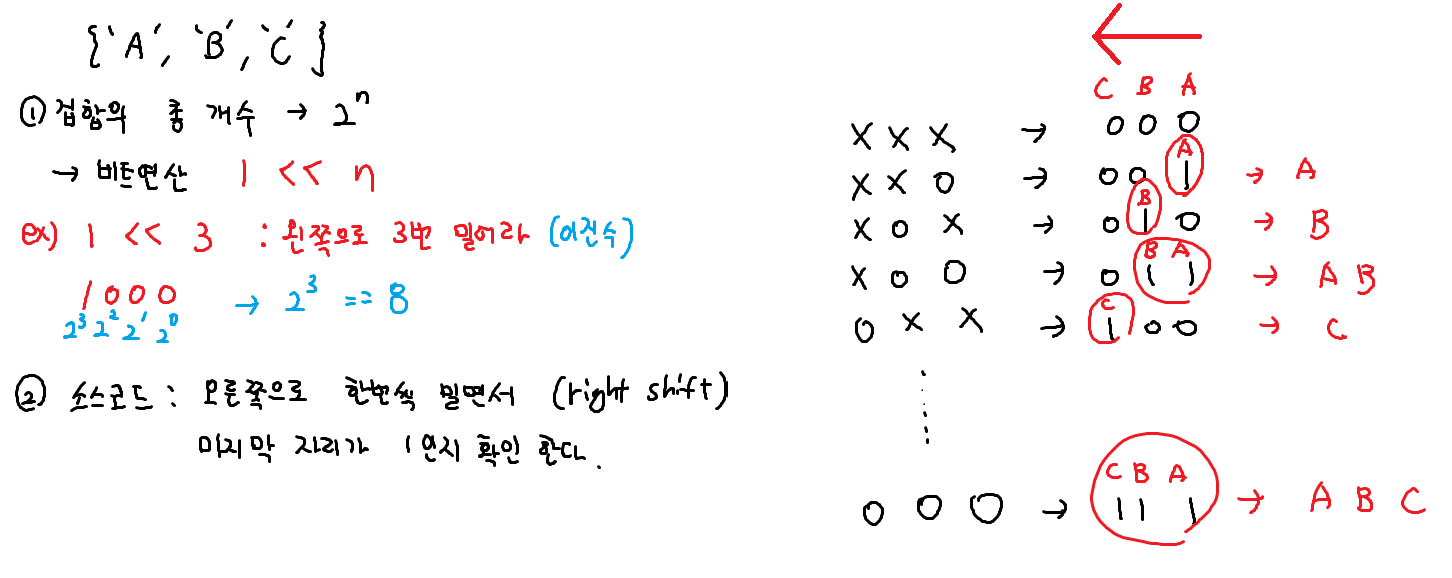 {'A', 'B', 'C'}
① 집합의 총 개수 → 2ⁿ
→ 비트연산 1 << n
ex) 1 << 3 : 왼쪽으로 3번 밀어라 (이진수)
1 0 0 0 → 2³ == 8
2³ 2² 2¹ 2⁰
② 소스코드 : 오른쪽으로 한번씩 밀면서 (right shift)
마지막 자리가 1인지 확인 한다.
←
C B A
X X X → 0 0 0
A
X X O → 0 0 1 → A
B
X O X → 0 1 0 → B
B A
X O O → 0 1 1 → A B
C
O X X → 1 0 0 → C
C B A
O O O → 1 1 1 → A B C